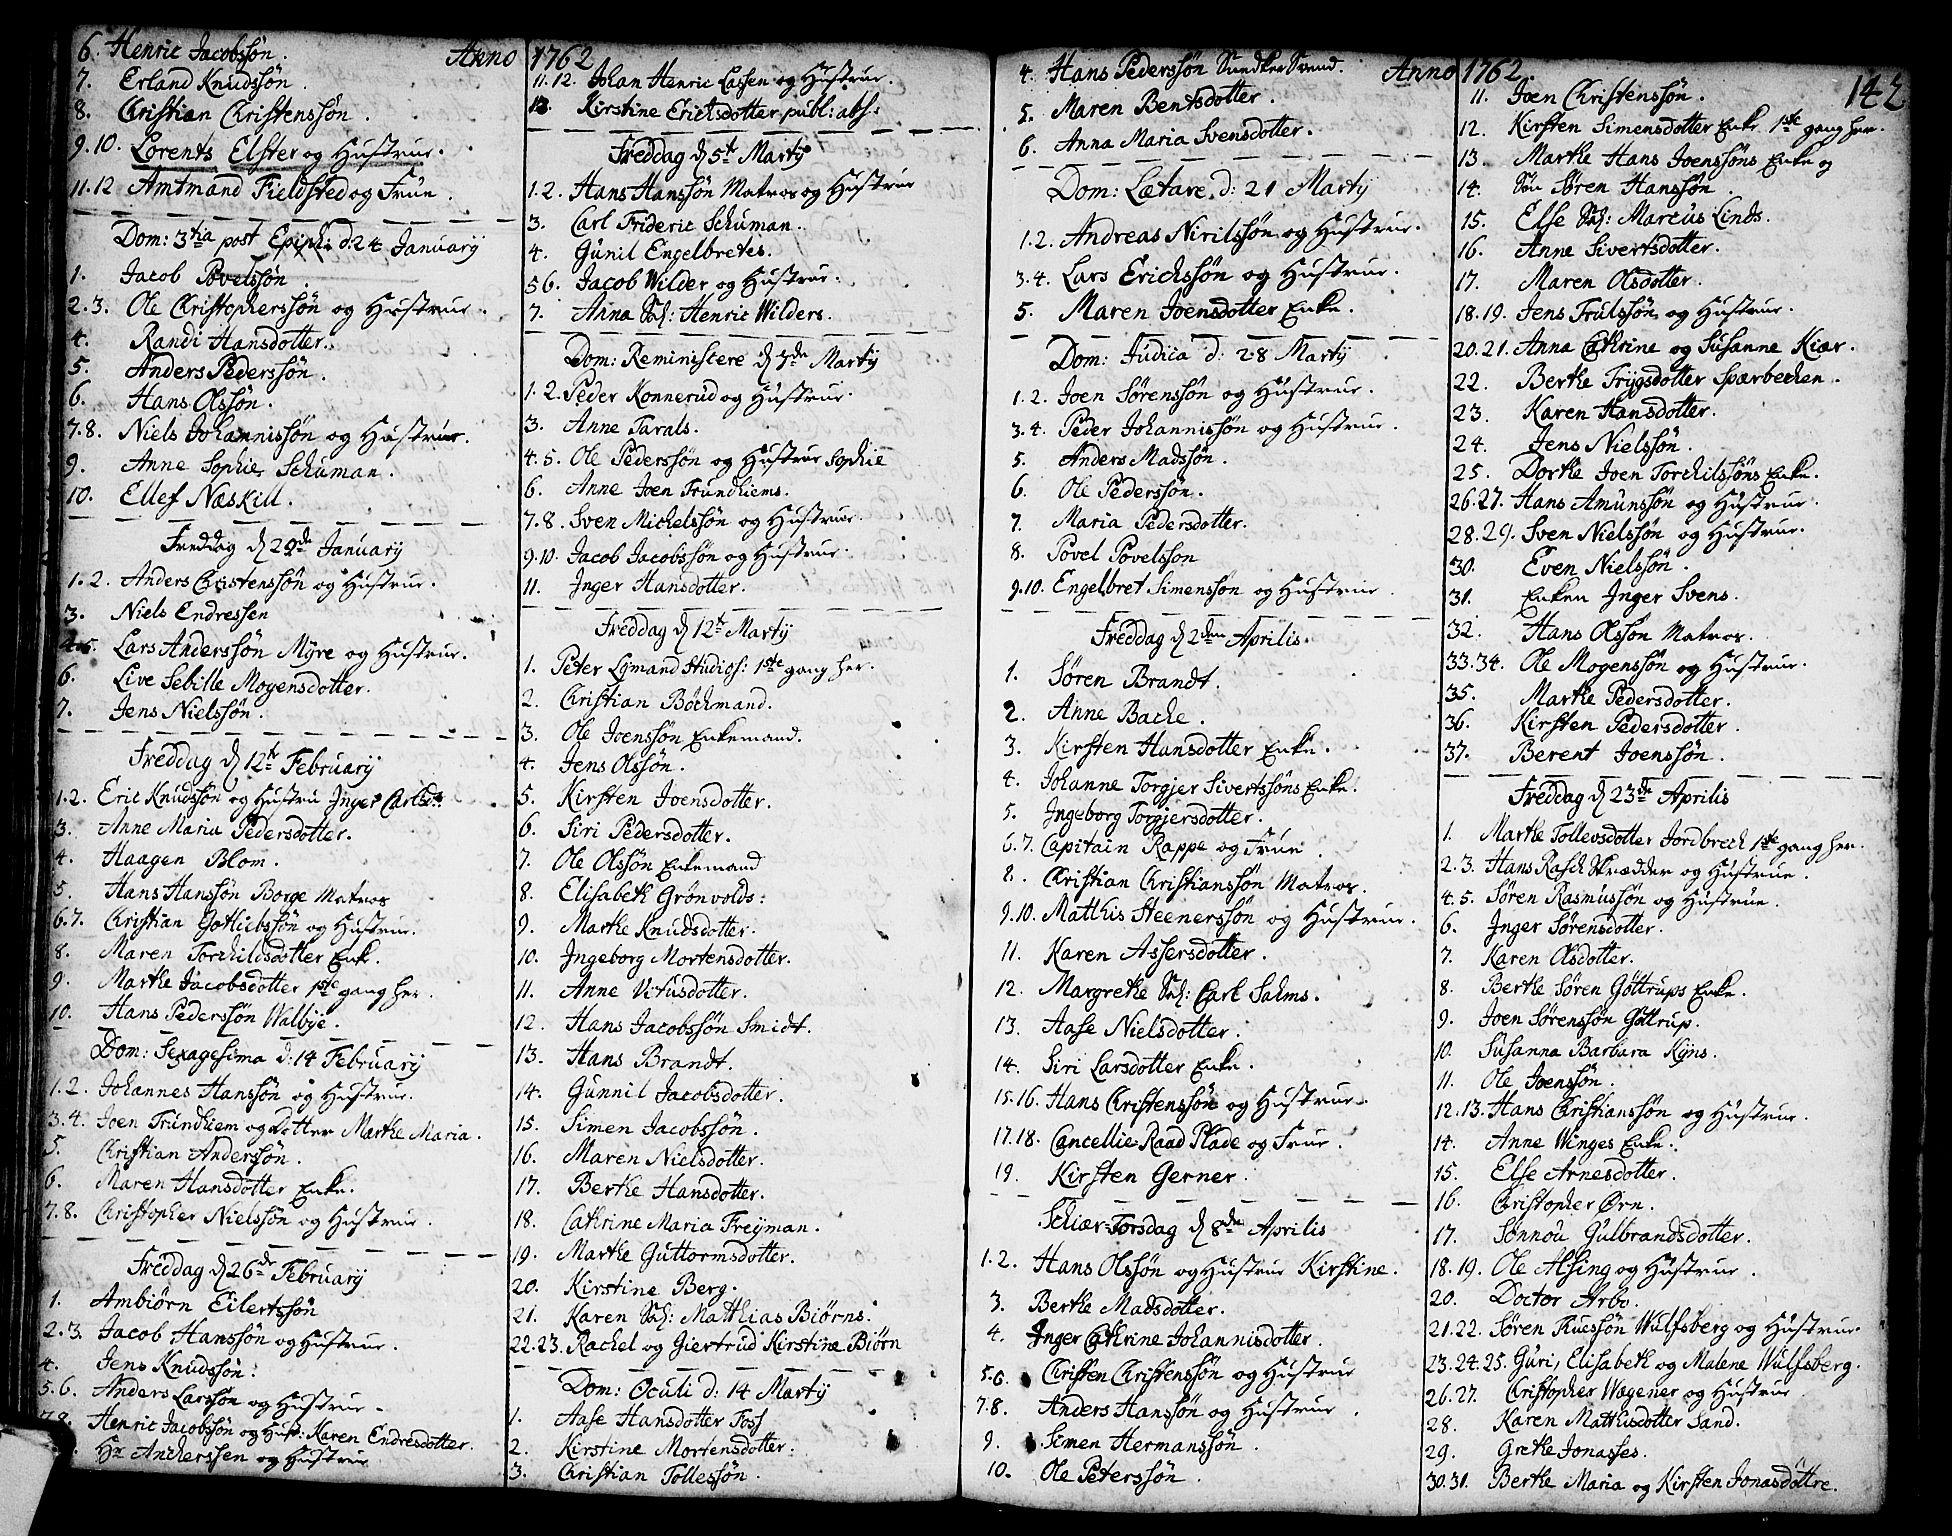 Anno 1762
6. Henric Jacobssøn.
7. Erland Knudssøn.
8. Christian Christenssøn.
9.10. Lorents Elster og Hustrue.
11.12 Amtmand Fieldsted og Frue.
Dom: 3tia post Epiph: d: 24 Januarÿ
1. Jacob Povelssøn
2.3. Ole Christopherssøn og Hustrue.
4. Randi Hansdotter.
5. Anders Pederssøn.
6. Hans Olssøn.
7.8. Niels Johannissøn og Hustrue.
9. Anne Sophie Schuman.
10. Ellef Næskill.
Freddag d. 29de Januarÿ
1.2. Anders Christenssøn og Hustrue.
3. Niels Endressen
4.5. Lars Anderssøn Mÿre og Hustrue.
6. Live Sebille Mogensdotter.
7. Jens Nielssøn.
Freddag d. 12te Februarÿ
1.2. Eric Knudssøn og Hustru Inger Carlsd:
3. Anne Maria Pedersdotter.
4. Haagen Blom.
5. Hans Hanssøn Borge Matros
6.7. Christian Gotliebssøn og Hustrue.
8. Maren Torchildsdotter Enk.
9. Marthe Jacobsdotter 1ste gang her.
10. Hans Pederssøn Walbÿe.
Dom: Sexagesima d: 14 Februarÿ
1.2. Johannes Hanssøn og Hustrue.
3.4. Joen Trundhiem og Dotter Marthe Maria.
5. Christian Anderssøn.
6. Maren Hansdotter Enke.
7.8. Christopher Nielssøn og Hustrue.
Freddag d. 26de Februarÿ
1. Ambiørn Eilertssøn
2.3. Jacob Hanssøn og Hustrue.
4. Jens Knudssøn:
5.6. Anders Larssøn og Hustrue.
7.8. Henric Jacobssøn og Hust: Karen Endresdotter.
Hr Ancherssen og Hustrue
11.12. Johan Henric Lassen og Hustrue.
13 Kirstine Erichsdotter publ: abs:
Freddag d. 5te Martÿ
1.2. Hans Hanssøn Matros og Hustrue
3. Carl Frideric Schuman.
4. Gunil Engelbretes.
5 6. Jacob Wilder og Hustrue.
7. Anna Sal: Henric Wilders.
Dom: Reminiscere d. 7de Martÿ
1.2. Peder Konnerud og Hustrue.
3. Anne Tarals.
4.5. Ole Pederssøn og Hustrue Sophie
6. Anne Joen Trundhiems.
7.8. Sven Michelssøn og Hustrue.
9.10. Jacob Jacobssøn og Hustrue.
11. Inger Hansdotter.
Freddag d. 12te Martÿ
1. Peter Lÿmand Studios: 1ste gang her.
2. Christian Bøchmand.
3. Ole Joenssøn Enkemand.
4. Jens Olssøn.
5. Kirsten Joensdotter.
6. Siri Pedersdotter.
7. Ole Olssøn Enkemand
8. Elisabeth Grønvolds:
9. Marthe Knudsdotter.
10. Ingeborg Mortensdotter.
11. Anne Vitusdotter.
12. Hans Jacobssøn Smidt.
13. Hans Brandt.
14. Gunnil Jacobsdotter.
15. Simen Jacobssøn.
16. Maren Nielsdotter.
17. Berthe Hansdotter.
18. Cathrine Maria Freÿman.
19. Marthe Guttormsdotter.
20. Kirstine Berg.
21. Karen Sal: Matthias Biørns.
22.23. Rachel og Giertrud Kirstine Biørn
Dom: Oculi d: 14 Martÿ
1. Aase Hansdotter Foss
2. Kirstine Mortensdotter:
3. Christian Tollessøn.
Anno 1762
142
4. Hans Pederssøn Snedker Svend.
5. Maren Bentsdotter.
6. Anna Maria Svensdotter.
Dom: Lætare d: 21 Martÿ
1.2. Andreas Nirilssøn og Hustrue.
3.4. Lars Erichssøn og Hustrue.
5. Maren Joensdotter Enke.
Dom: Judica d: 28 Martÿ
1.2. Joen Sørenssøn og Hustrue.
3.4. Peder Johannissøn og Hustrue.
5. Anders Madssøn.
6. Ole Pederssøn.
7. Maria Pedersdotter.
8. Povel Povelsson
9.10. Engelbret Simenssøn og Hustrue.
Freddag d. 2den Aprilis.
1. Søren Brandt.
2. Anne Bache.
3. Kirsten Hansdotter Enke.
4. Johanne Torgjer Sivertssøns Enke.
5. Ingeborg Torgjersdotter.
6.7. Capitain Rappe og Frue.
8. Christian Christianssøn Matros.
9.10. Matthis Steenerssøn og Hustrue.
11. Karen Assersdotter.
12. Margrethe Sal: Carl Salms.
13. Aase Nielsdotter.
14. Siri Larsdotter Enke.
15.16. Hans Christenssøn og Hustrue.
17.18. Cancellie Raad Plade og Frue.
19. Kirsten Gerner.
Schiær-Torsdag d. 8de Aprilis
1.2. Hans Olssøn og Hustrue Kirstine.
3. Berthe Madsdotter.
4. Inger Cathrine Johannisdotter.
5.6. Christen Christenssøn og Hustrue
7.8. Anders Hanssøn og Hustrue.
9. Simen Hermanssøn.
10. Ole Peterssøn.
11. Joen Christenssøn.
12. Kirsten Simensdotter Enke 1ste gang her.
13. Marthe Hans Joenssøns Enke og
14. Søn Søren Hanssøn.
15. Else Sal: Marcus Linds.
16. Anne Sivertsdotter.
17. Maren Olsdotter.
18.19. Jens Trulssøn og Hustrue.
20.21. Anna Cathrine og Susanne Kiær.
22. Berthe Trÿgsdotter Spærbechen.
23. Karen Hansdotter.
24. Jens Nielssøn.
25. Dorthe Joen Torchilssøns Enke.
26.27. Hans Amunssøn og Hustrue.
28.29. Sven Nielssøn og Hustrue.
30. Even Nielssøn.
31. Enken Inger Svens.
32. Hans Olssøn Matros.
33.34. Ole Mogenssøn og Hustrue.
35. Marthe Pedersdotter.
36. Kirsten Pedersdotter.
37. Berent Joenssøn.
Freddag d. 23de Aprilis
1. Marthe Tollevsdotter Jordbrech 1ste gang her.
2.3. Hans Rasch Skrædder og Hustrue.
4.5. Søren Rasmussøn og Hustrue.
6. Inger Sørensdotter.
7. Karen Olsdotter.
8. Berthe Søren Gøttrups Enke.
9. Joen Sørenssøn Gøttrup.
10. Susanna Barbara Kÿns.
11. Ole Joenssøn.
12.13. Hans Christianssøn og Hustrue.
14. Anne Winges Enke.
15. Else Arnesdotter.
16. Christopher Ørn.
17. Sønnou Gulbrandsdotter.
18.19. Ole Alsing og Hustrue.
20. Doctor Arbo.
21.22. Søren Truessøn Wulfsberg og Hustrue.
23.24.25. Guri, Elisabeth og Malene Wulfsberg.
26.27. Christopher Wagener og Hustrue.
28. Karen Matthisdotter Sand.
29. Grethe Jonasses.
30.31. Berthe Maria og Kirsten Jonasdøttre.